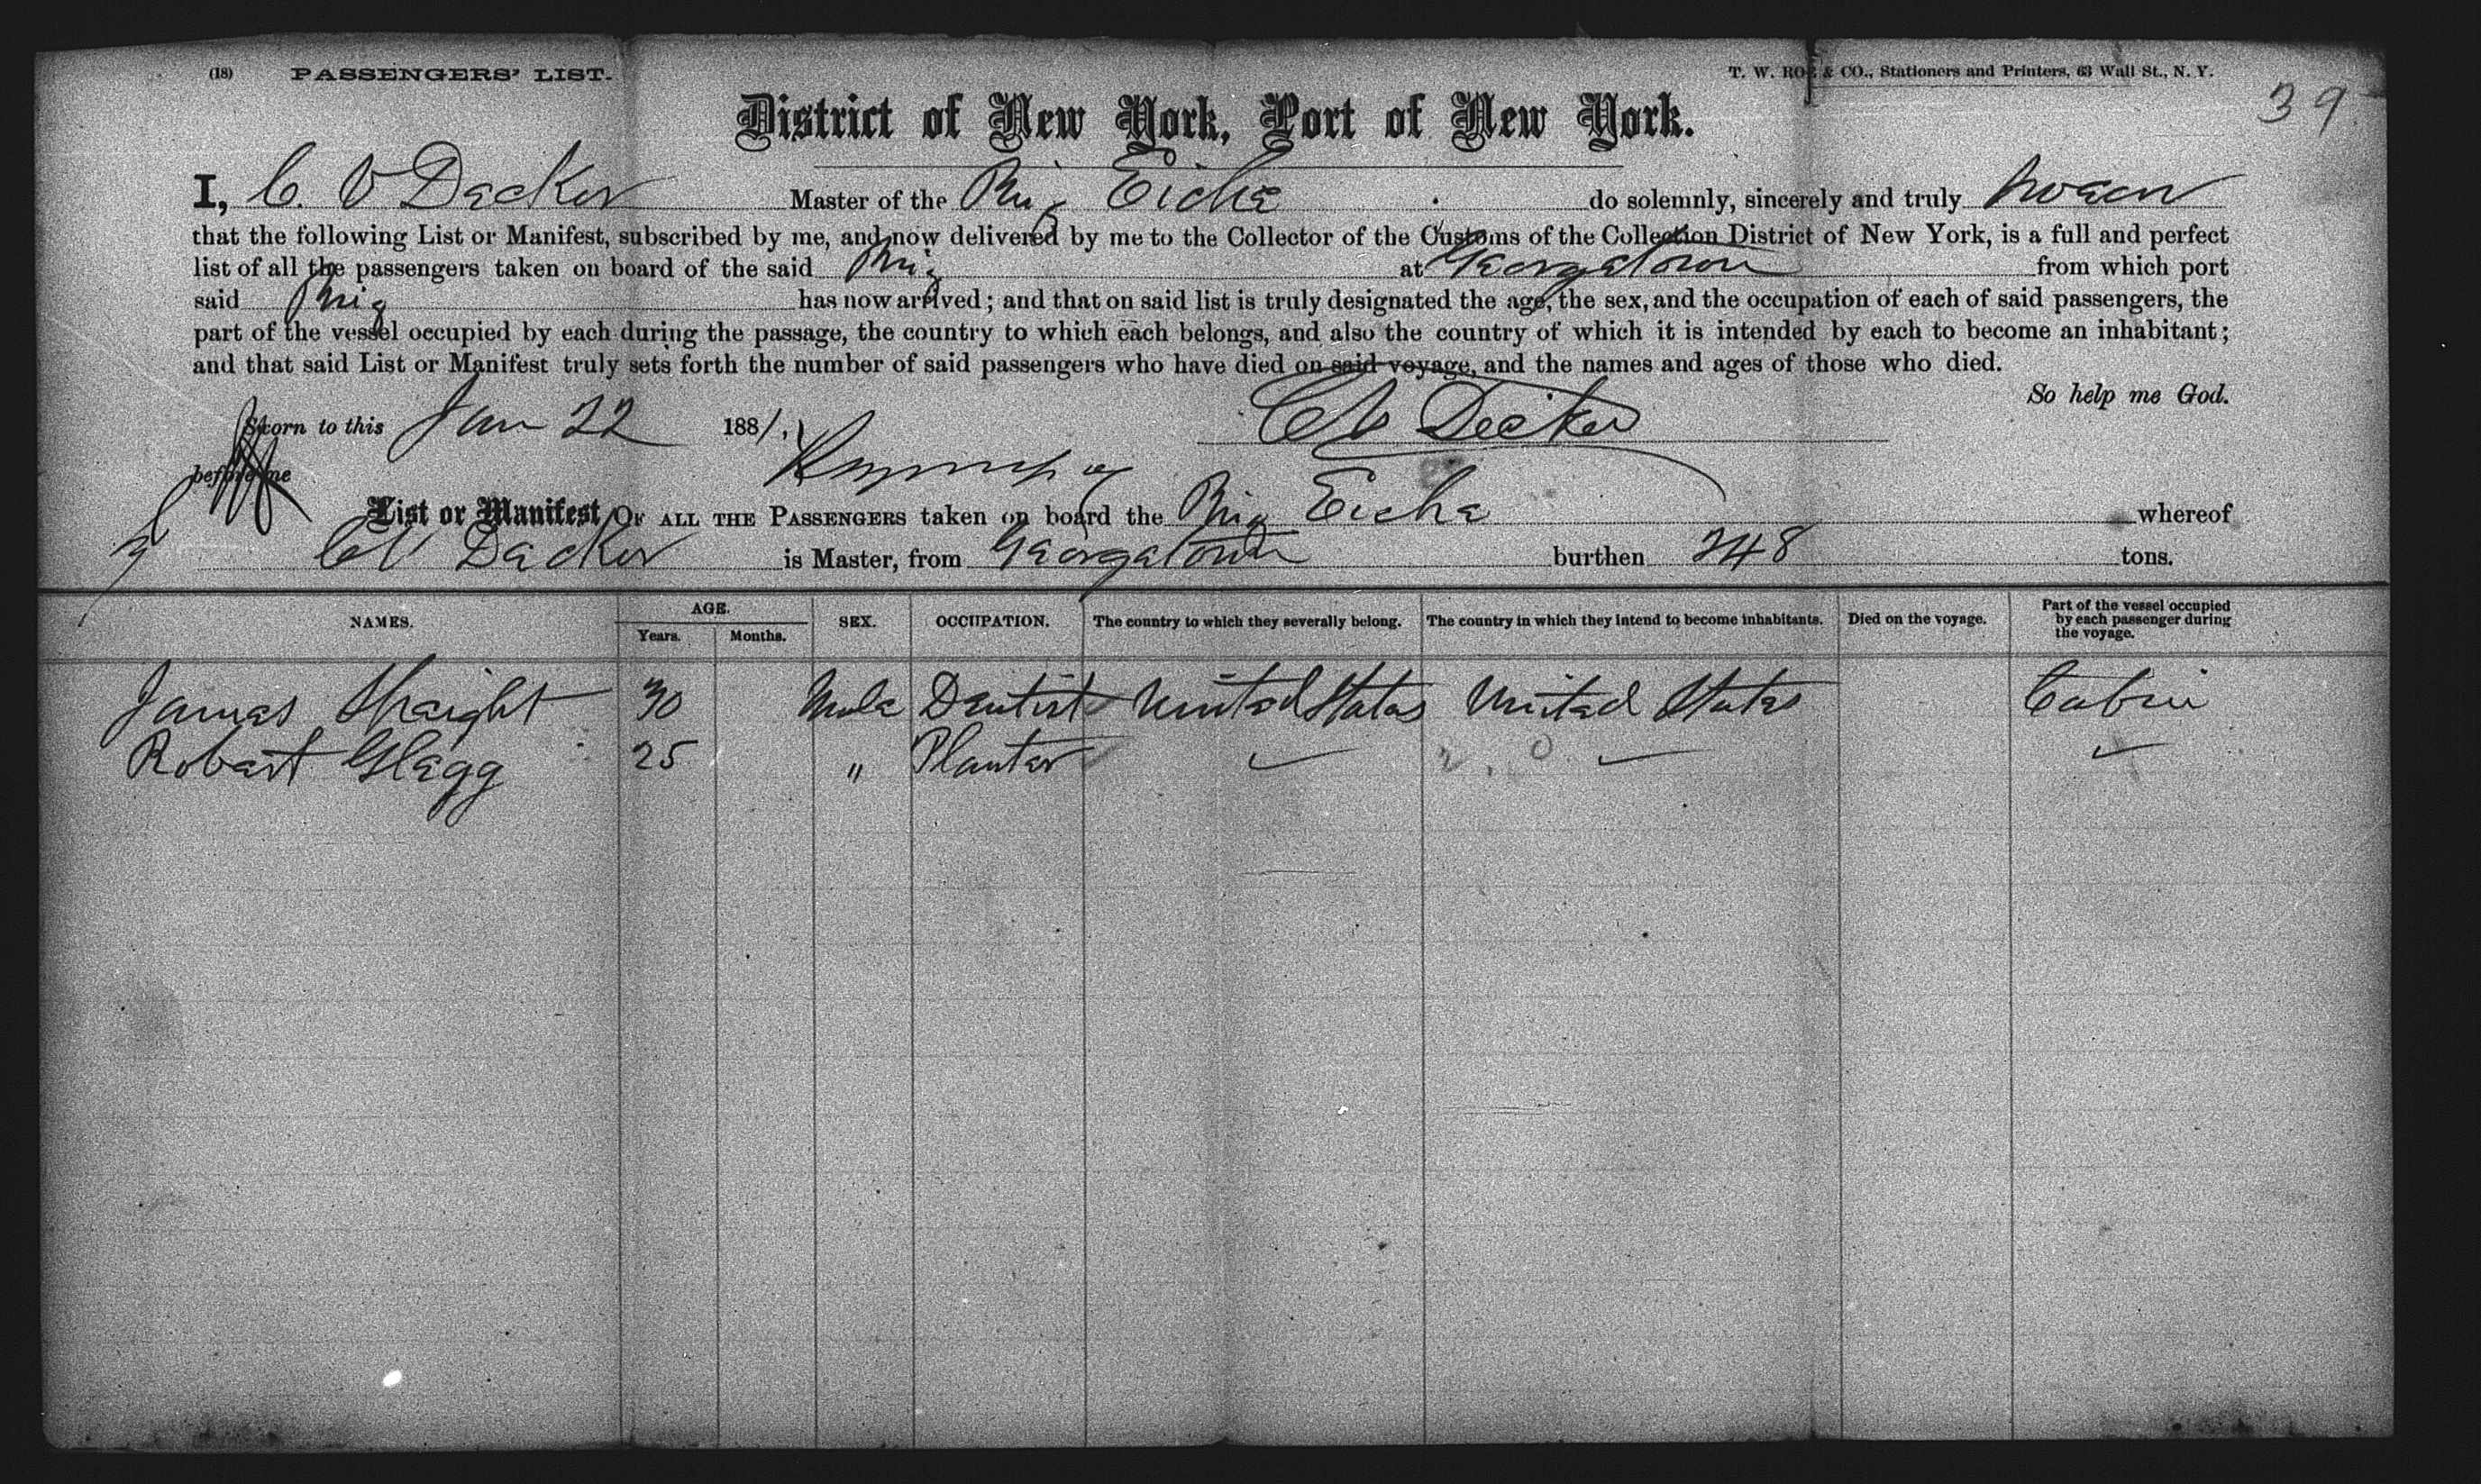 (18) PASSENGERS' LIST. T. W. ROE & CO., Stationers and Printers, 63 Wall St., N. Y.
39
District of New York, Port of New York.
I, C. V Decker Master of the Brig Eicha do solemnly, sincerely and truly swear
that the following List or Manifest, subscribed by me, and now delivered by me to the Collector of the Customs of the Collection District of New York, is a full and perfect
list of all the passengers taken on board of the said Brig at Georgetown from which port
said Brig has now arrived; and that on said list is truly designated the age, the sex, and the occupation of each of said passengers, the
part of the vessel occupied by each during the passage, the country to which each belongs, and also the country of which it is intended by each to become an inhabitant;
and that said List or Manifest truly sets forth the number of said passengers who have died on said voyage, and the names and ages of those who died.
So help me God.
Sworn to this Jan 22 1881, CV Decker
before me
List or Manifest OF ALL THE PASSENGERS taken on board the Brig Eicha whereof
CV Decker is Master, from Georgetown burthen 248 tons.
NAMES. AGE. Years. Months. SEX. OCCUPATION. The country to which they severally belong. The country in which they intend to become inhabitants. Died on the voyage. Part of the vessel occupied by each passenger during the voyage.
James 30 Male Dentist United States United States Cabin
Robert Glegg 25 " Planter